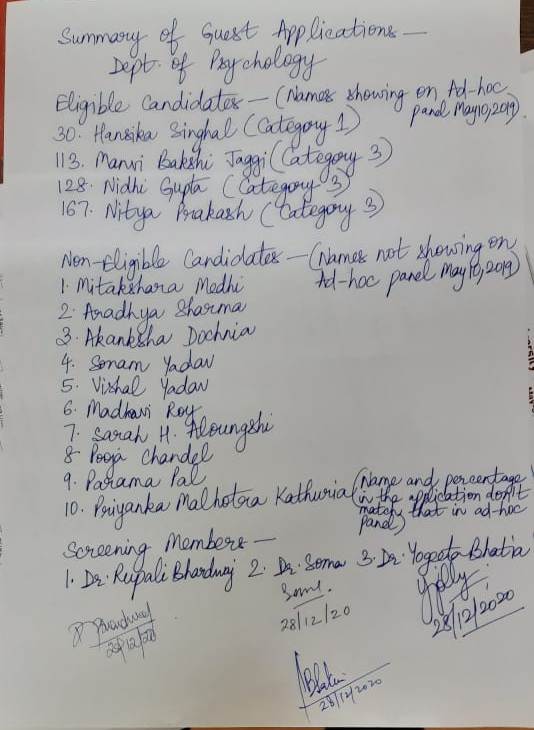 Summary of Guest Applications —
Dept. of Psychology
Eligible Candidates — (Names showing on Ad-hoc
panel May10,2019)
30. Hansika Singhal (Category 1)
113. Manvi Bakshi Jaggi (Category 3)
128. Nidhi Gupta (Category 3)
167. Nitya Prakash (Category 3)
Non-Eligible Candidates — (Names not showing on
Ad-hoc panel May10,2019)
1. Mitakshara Medhi
2. Aradhya Sharma
3. Akanksha Dochnia
4. Sonam Yadav
5. Vishal Yadav
6. Madhavi Roy
7. Sarah H. Aloungshi
8 Pooja Chandel
9. Parama Pal
10. Priyanka Malhotra Kathuria (Name and percentage
in the application don't
match that in ad-hoc
panel)
Screening Members —
1. Dr. Rupali Bhardwaj 2. Dr. Soma 3. Dr. Yogeeta Bhatia
28/12/20
28/12/20
28/12/2020
28/12/2020